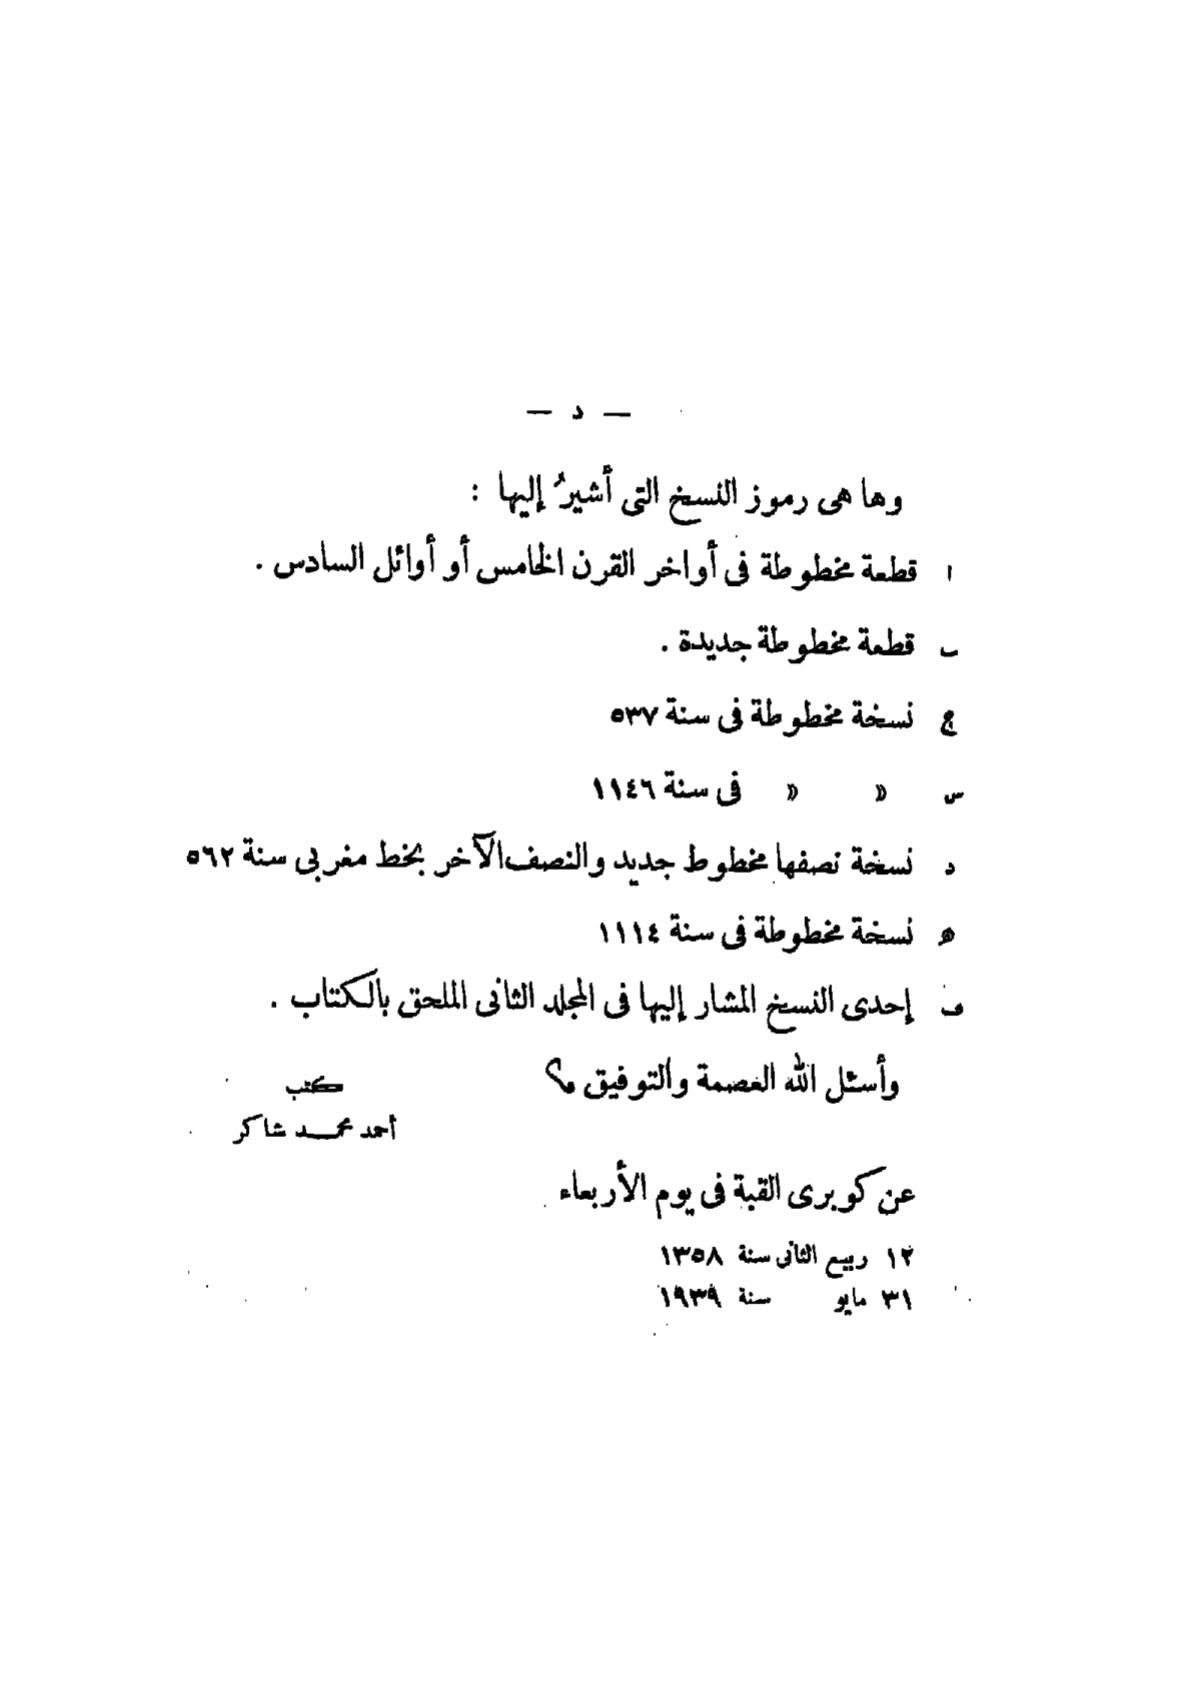 — د —
وها هى رموز النسخ التى أشيرُ إليها :
ا قطعة مخطوطة فى أواخر القرن الخامس أو أوائل السادس .
ب قطعة مخطوطة جديدة .
ج نسخة مخطوطة فى سنة ٥٣٧
س » » فى سنة ١١٤٦
د نسخة نصفها مخطوط جديد والنصف الآخر بخط مغربى سنة ٥٦٢
ه نسخة مخطوطة فى سنة ١١١٤
ف إحدى النسخ المشار إليها فى المجلد الثانى الملحق بالكتاب .
وأسئل الله العصمة والتوفيق م؟
كتب
أحمد محمد شاكر
عن كوبرى القبة فى يوم الأربعاء
١٢ ربيع الثانى سنة ١٣٥٨
٣١ مايو سنة ١٩٣٩